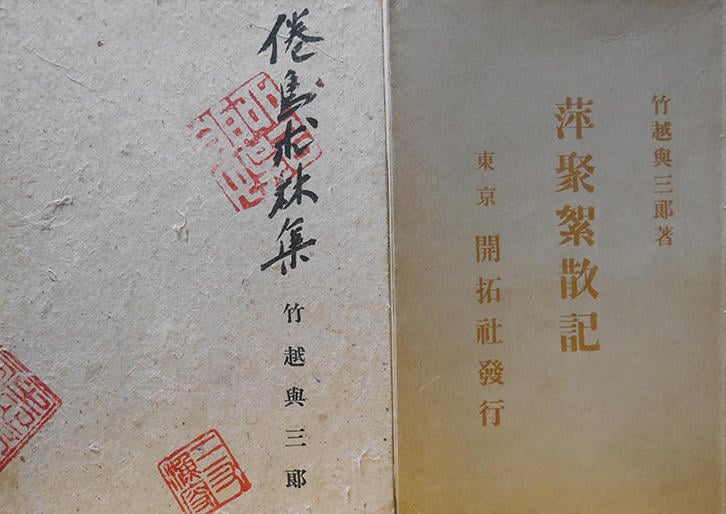 竹越與三郎著
萍聚絮散記
東京 開拓社發行
倦鳥求林集
竹越與三郎